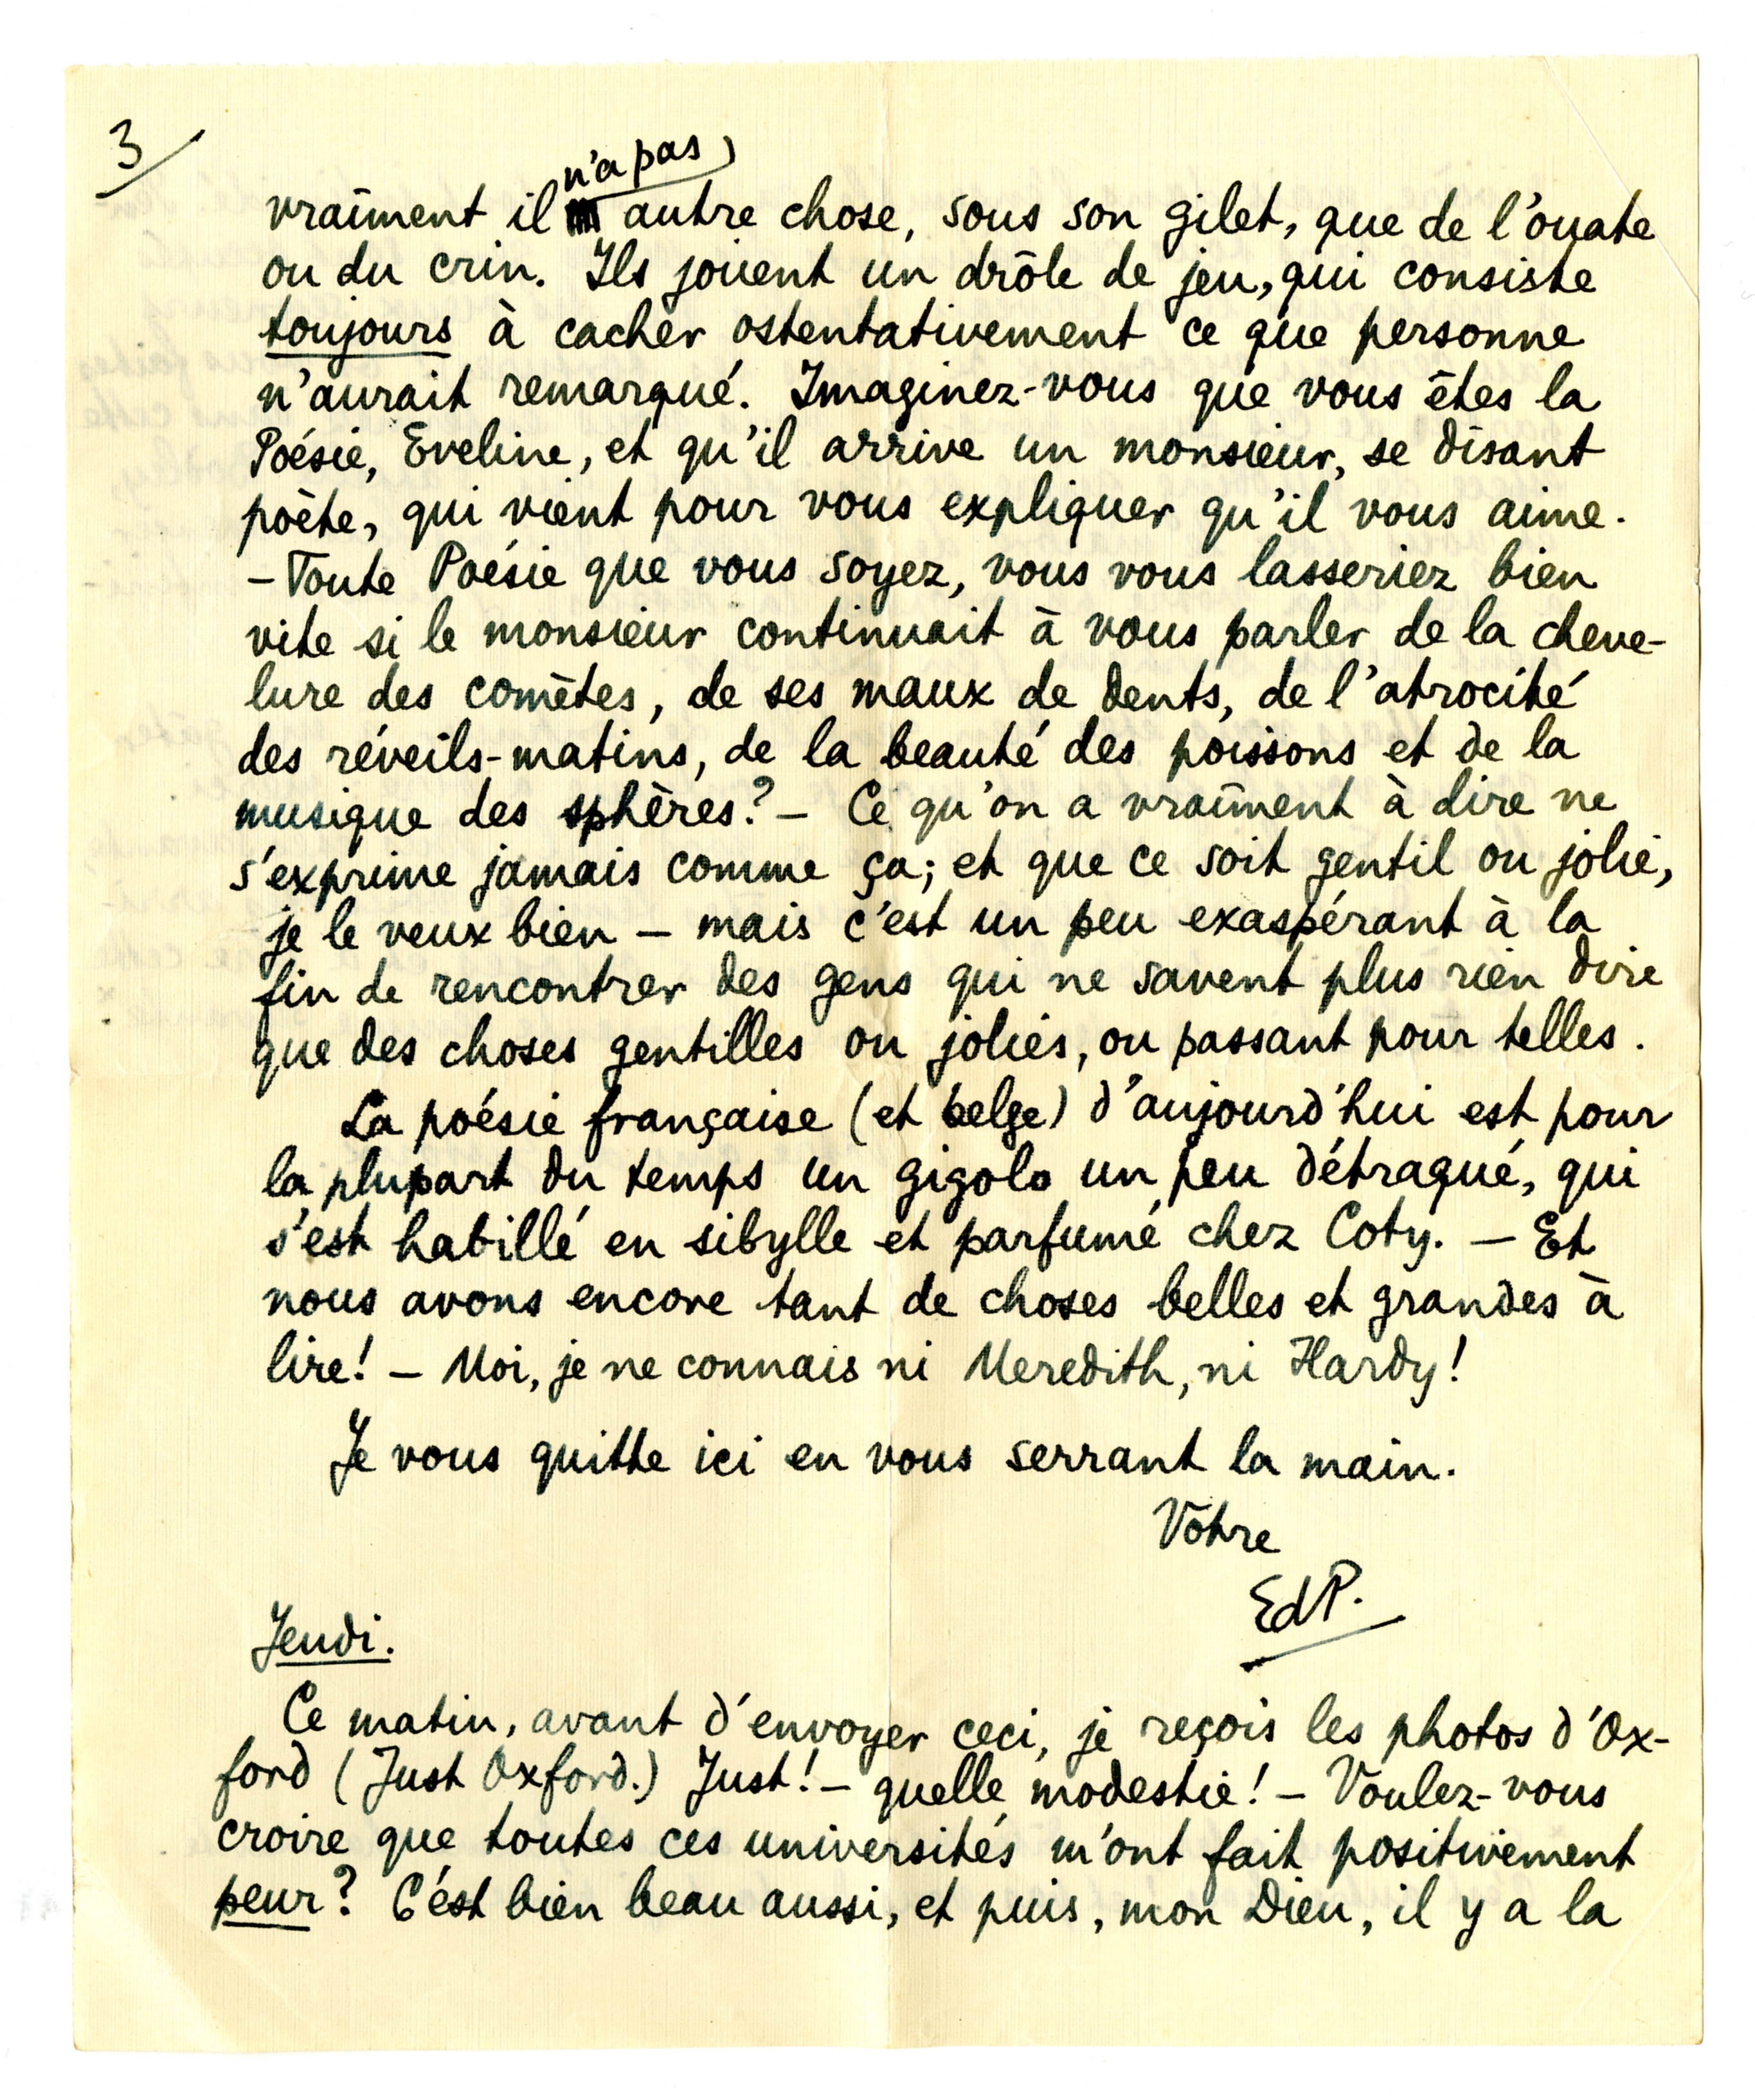 3
n'a pas
vraiment il autre chose, sous son gilet, que de l'ouate
ou du crin. Ils jouent un drôle de jeu, qui consiste
toujours à cacher ostentativement ce que personne
n'aurait remarqué. Imaginez-vous que vous êtes la
Poésie, Eveline, et qu'il arrive un monsieur, se disant
poète, qui vient pour vous expliquer qu'il vous aime.
– Toute Poésie que vous soyez, vous vous lasseriez bien
vite si le monsieur continuait à vous parler de la cheve-
lure des comètes, de ses maux de dents, de l'atrocité
des réveils-matins, de la beauté des poissons et de la
musique des sphères? – Ce qu'on a vraiment à dire ne
s'exprime jamais comme ça; et que ce soit gentil ou joli,
je le veux bien – mais c'est un peu exaspérant à la
fin de rencontrer des gens qui ne savent plus rien dire
que des choses gentilles ou jolies, ou passant pour telles.
La poésie française (et belge) d'aujourd'hui est pour
la plupart du temps un gigolo un peu détraqué, qui
s'est habillé en sibylle et parfumé chez Coty. – Et
nous avons encore tant de choses belles et grandes à
lire! – Moi, je ne connais ni Meredith, ni Hardy!
Je vous quitte ici en vous serrant la main.
Vôtre
EdP.
Jeudi.
Ce matin, avant d'envoyer ceci, je reçois les photos d'Ox-
ford (Just Oxford.) Just! – quelle modestie! – Voulez-vous
croire que toutes ces universités m'ont fait positivement
peur? C'est bien beau aussi, et puis, mon Dieu, il y a la